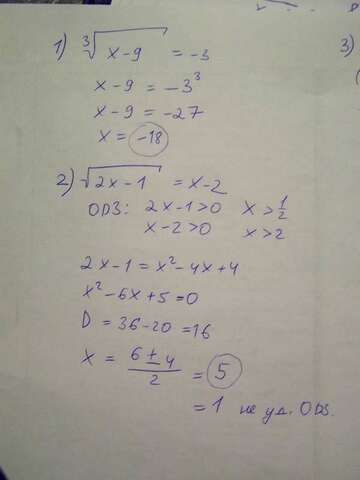 1) ∛(x-9) = -3
x-9 = -3³
x-9 = -27
x = -18
3)
(
2) √(2x-1) = x-2
ОДЗ: 2x-1>0 x>1/2
x-2>0 x>2
2x-1 = x²-4x+4
x²-6x+5=0
D = 36-20 = 16
x = (6±4)/2 = 5
= 1 не уд. ОДЗ.